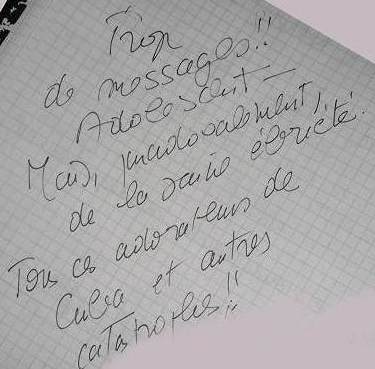 Trop
de messages!!
Adolescent –
Mais, paradoxalement,
de la saine ébriété.
Tous ces adorateurs de
Cuba et autres
catastrophes!!